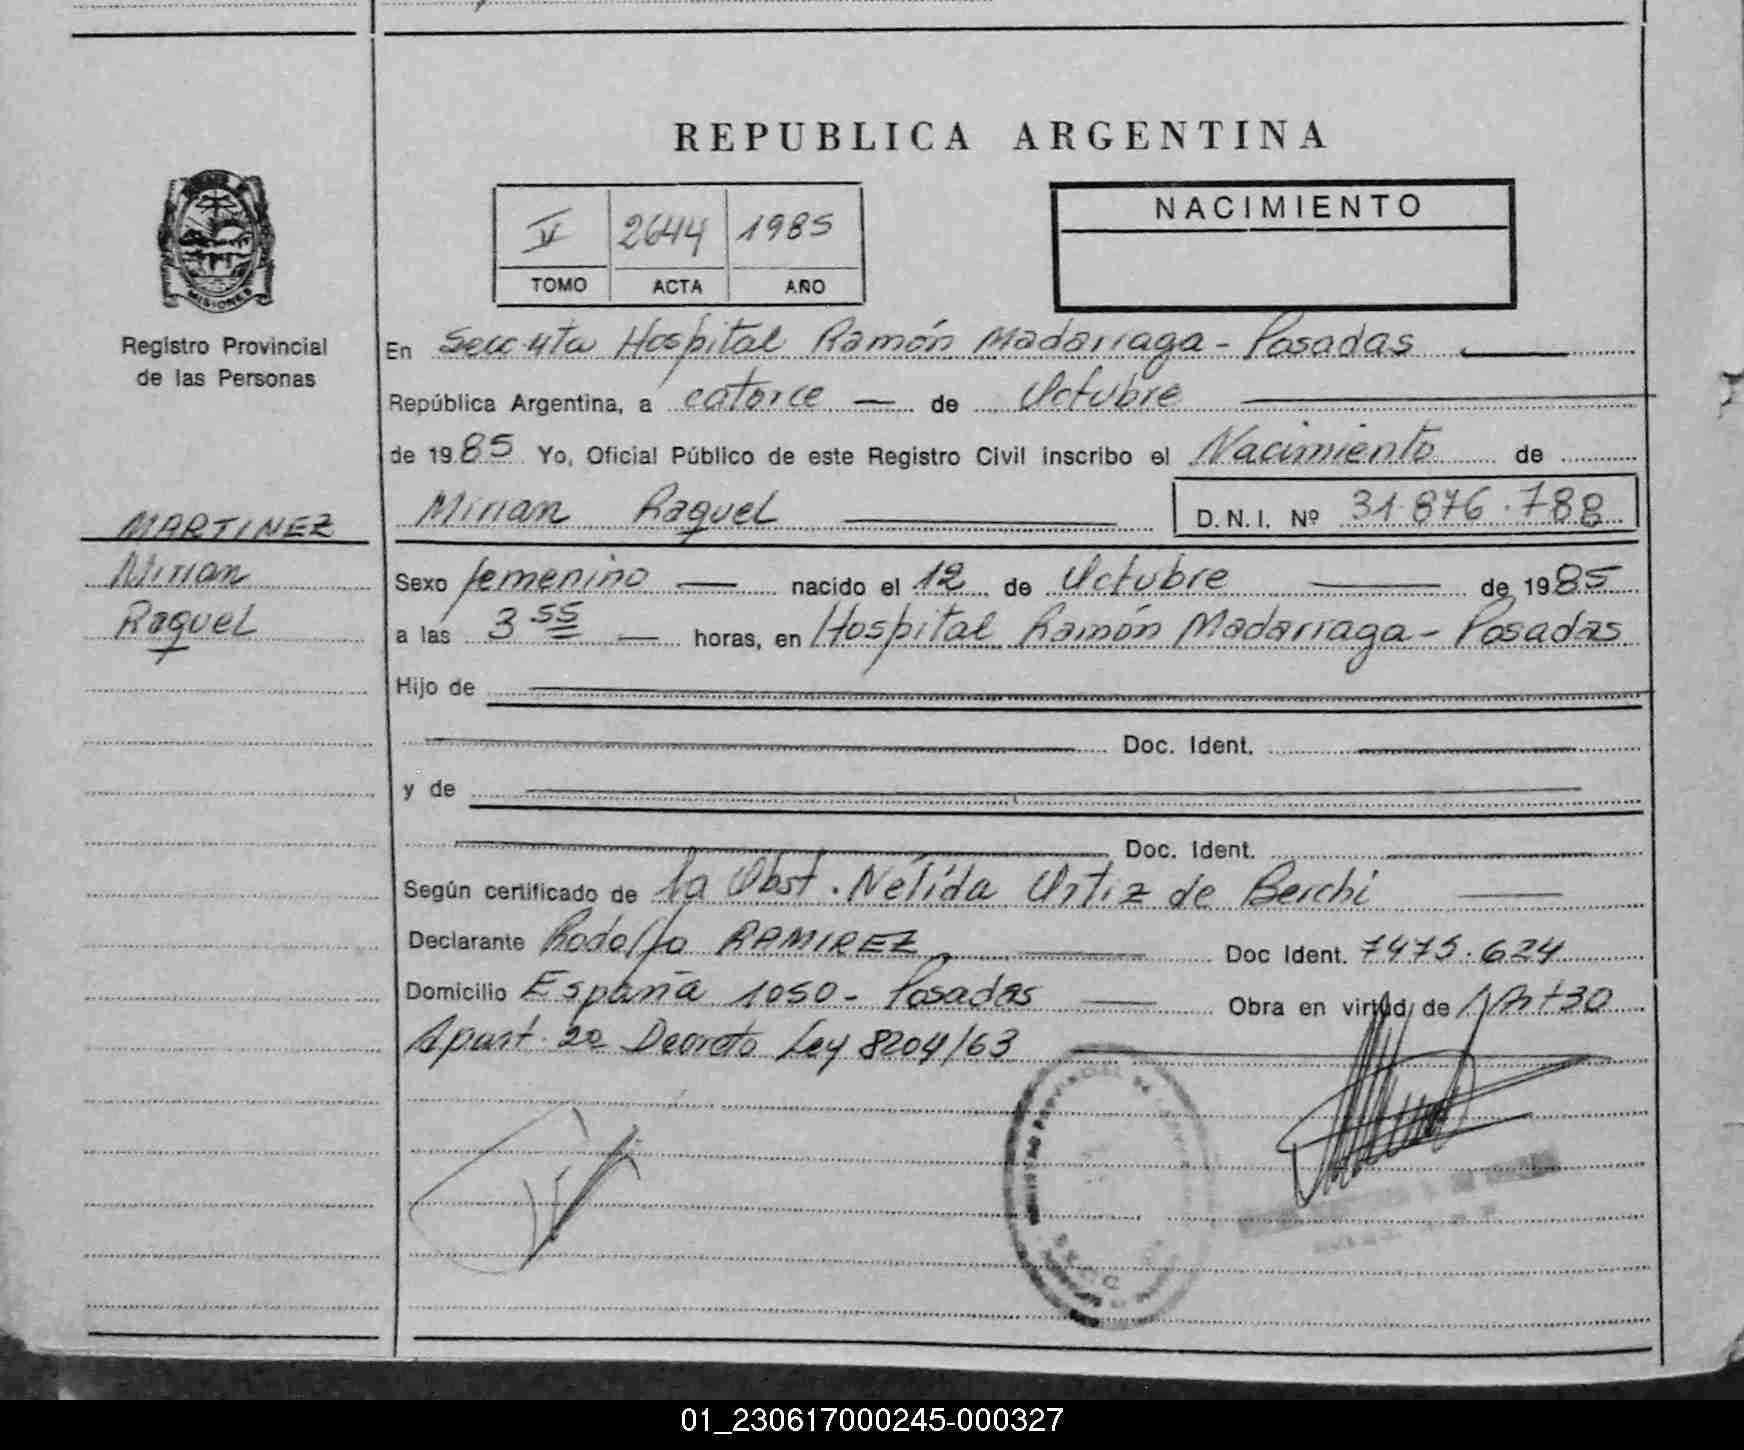 REPUBLICA ARGENTINA
V 2644 1985
TOMO ACTA AÑO
NACIMIENTO
MISIONES
Registro Provincial
de las Personas
MARTINEZ
Mirian
Raquel
En Secc 4ta Hospital Ramón Madariaga - Posadas
República Argentina, a catorce de Octubre
de 1985 Yo, Oficial Público de este Registro Civil inscribo el Nacimiento de
Mirian Raquel D.N.I. Nº 31.876.788
Sexo femenino nacido el 12 de Octubre de 1985
a las 3 55 horas, en Hospital Ramón Madariaga - Posadas
Hijo de
Doc. Ident.
y de
Doc. Ident.
Según certificado de la Obst. Nélida Ortiz de Berchi
Declarante Rodolfo RAMIREZ Doc Ident. 7475.624
Domicilio España 1050 - Posadas Obra en virtud de Art 30
Apart. 2º Decreto Ley 8204/63
01_230617000245-000327